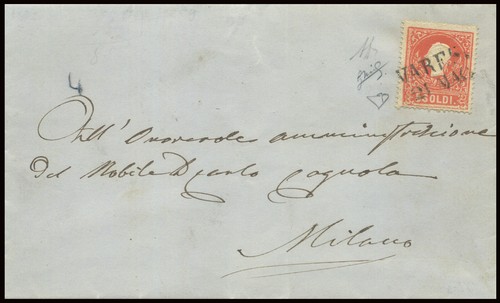 VARES
21 MAG
SOLDI
4
All' Onorevole amministrazione
del Nobile D Carlo Cagnola
Milano